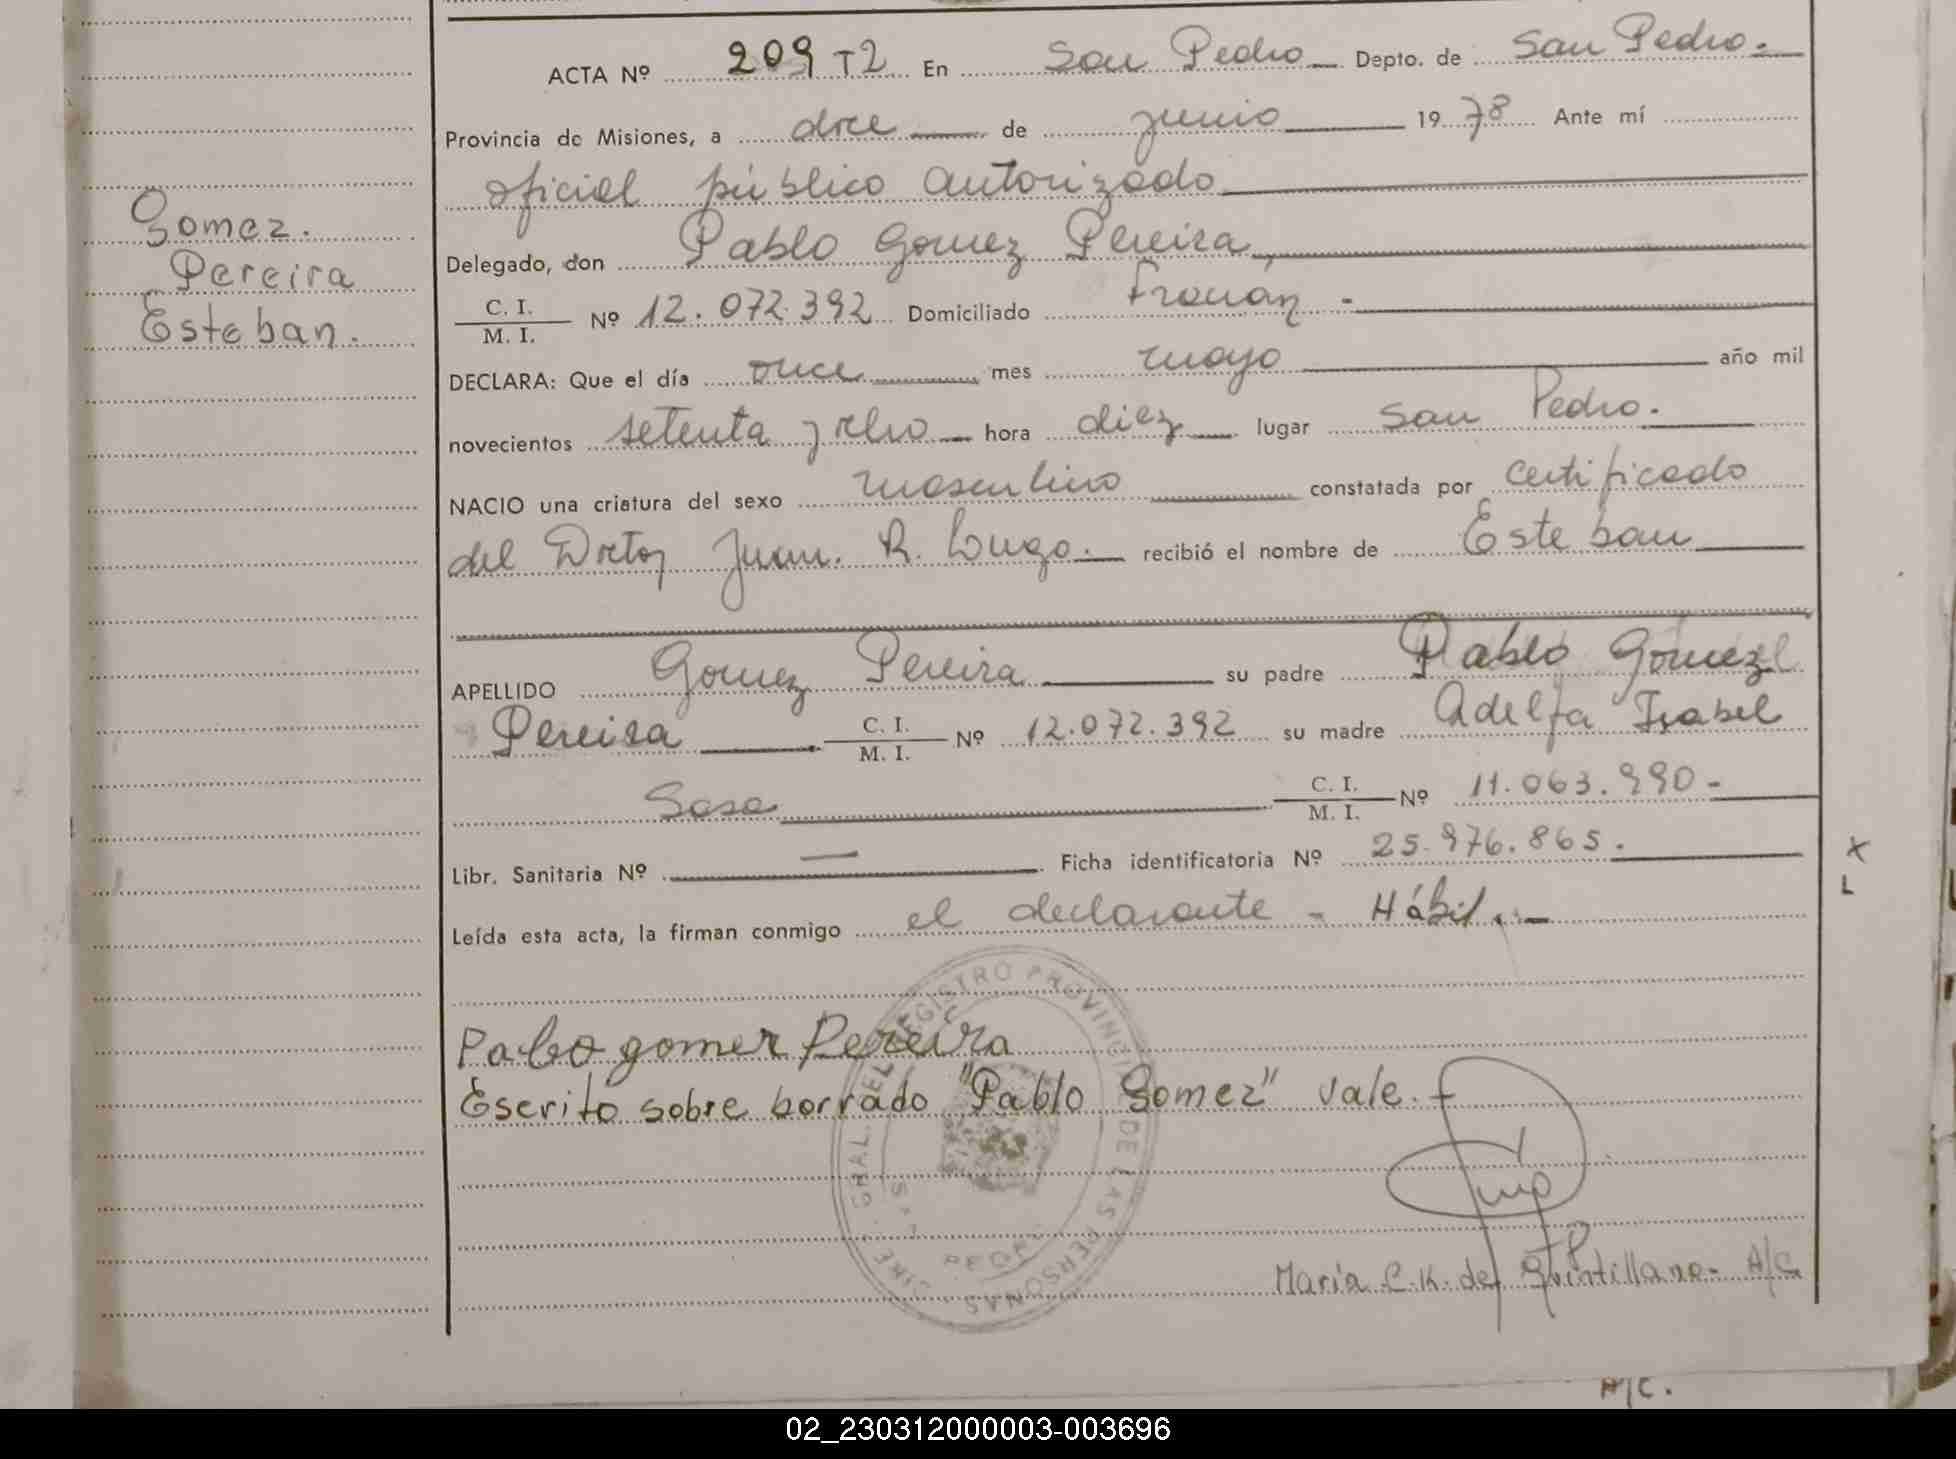 ACTA Nº 209 T2 En San Pedro Depto. de San Pedro.
Provincia de Misiones, a doce de junio 1978 Ante mí
oficial público autorizado
Gomez.
Delegado, don Pablo Gomez Pereira,
Pereira
C. I.
M. I. Nº 12.072.392 Domiciliado
Esteban.
DECLARA: Que el día once mes mayo año mil
novecientos setenta y ocho hora diez lugar San Pedro.
NACIO una criatura del sexo masculino constatada por certificado
del Doctor Juan. R. Lugo. recibió el nombre de Esteban
APELLIDO Gomez Pereira su padre Pablo Gomez
Pereira C. I.
M. I. Nº 12.072.392 su madre Adelfa Isabel
Sosa C. I.
M. I. Nº 11.063.990-
Libr. Sanitaria Nº — Ficha identificatoria Nº 25.976.865.
X
L
Leída esta acta, la firman conmigo el declarante - Hábil.-
Pablo gomez Pereira
Escrito sobre borrado "Pablo Gomez" vale.
DIRE. GRAL. DEL REGISTRO PROVINCIAL DE LAS PERSONAS
SAN PEDRO
María C.K. de Quintillano- A/C
A/C.
02_230312000003-003696